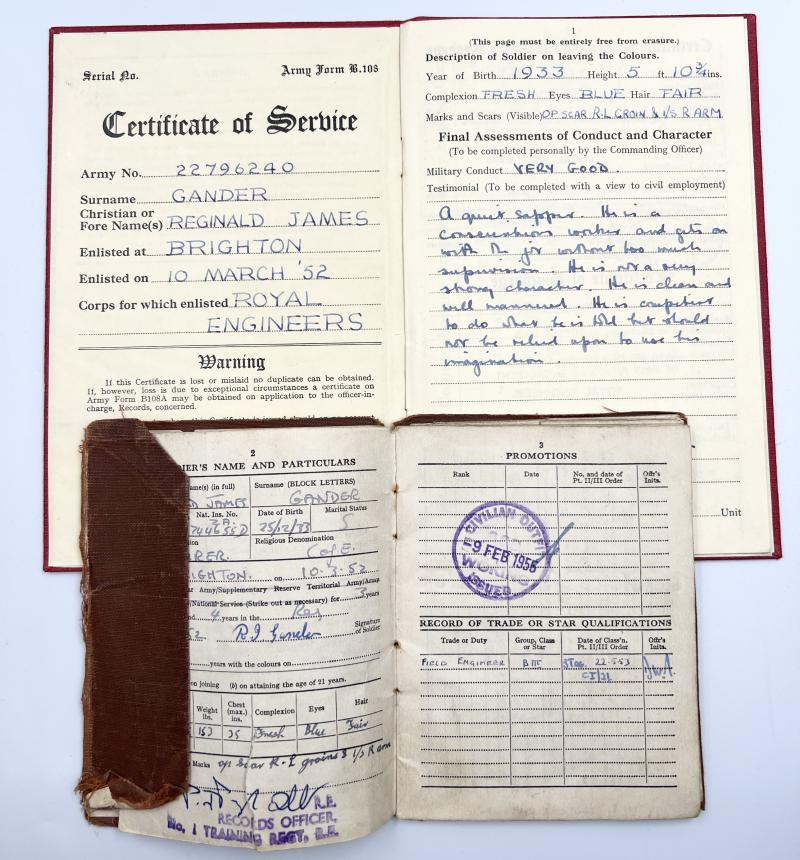 Serial No.
Army Form B.108
Certificate of Service
Army No. 22796240
Surname GANDER
Christian or
Fore Name(s) REGINALD JAMES
Enlisted at BRIGHTON
Enlisted on 10 MARCH '52
Corps for which enlisted ROYAL
ENGINEERS
Warning
If this Certificate is lost or mislaid no duplicate can be obtained.
If, however, loss is due to exceptional circumstances a certificate on
Army Form B108A may be obtained on application to the officer-in-
charge, Records, concerned.
1
(This page must be entirely free from erasure.)
Description of Soldier on leaving the Colours.
Year of Birth 1933 Height 5 ft. 10 3/4 ins.
Complexion FRESH Eyes BLUE Hair FAIR
Marks and Scars (Visible) OP SCAR R.L GROIN & I/S R ARM
Final Assessments of Conduct and Character
(To be completed personally by the Commanding Officer)
Military Conduct VERY GOOD.
Testimonial (To be completed with a view to civil employment)
A quiet Sapper. He is a
conscientious worker and gets on
with the job without too much
supervision. He is not a very
strong character. He is clean and
well mannered. He is competent
to do what he is told but should
not be relied upon to use his
imagination.
Unit
2
IER'S NAME AND PARTICULARS
ame(s) (in full) Surname (BLOCK LETTERS)
JAMES GANDER
Nat. Ins. No. Date of Birth Marital Status
25/12/33 S
Religious Denomination
C of E.
IGHTON. on 10.3.52
ar Army/Supplementary Reserve Territorial Army/Army
/National Service (Strike out as necessary) for 3 years
nd 4 years in the Res
R J Gander Signature of Soldier
years with the colours on
on joining (b) on attaining the age of 21 years.
Weight lbs. Chest (max.) ins. Complexion Eyes Hair
153 35 Fresh Blue Fair
Marks op scar R.L groins & I/S R arm
R.E.
RECORDS OFFICER,
No. 1 TRAINING REGT. R.E.
3
PROMOTIONS
Rank Date No. and date of Pt. II/III Order Offr's Inits.
CIVILIAN OUTFIT
-9 FEB 1956
ISSUED
RECORD OF TRADE OR STAR QUALIFICATIONS
Trade or Duty Group, Class or Star Date of Class'n. Pt. II/III Order Offr's Inits.
FIELD ENGINEER B III